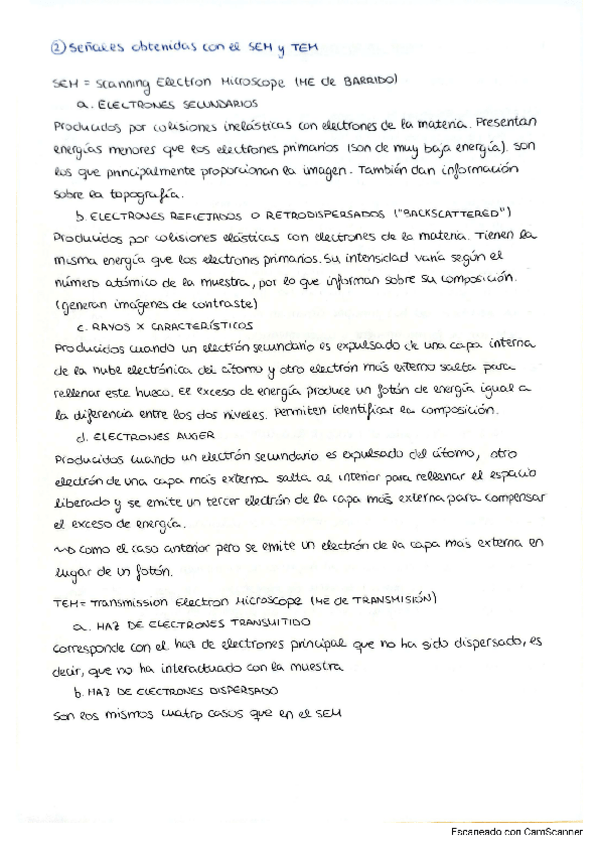 ② Señales obtenidas con el SEM y TEM
SEM = Scanning Electron Microscope (ME de BARRIDO)
a. ELECTRONES SECUNDARIOS
Producidos por colisiones inelásticas con electrones de la materia. Presentan
energías menores que los electrones primarios (son de muy baja energía). Son
los que principalmente proporcionan la imagen. También dan información
sobre la topografía.
b. ELECTRONES REFLEJADOS O RETRODISPERSADOS ("BACKSCATTERED")
Producidos por colisiones elásticas con electrones de la materia. Tienen la
misma energía que los electrones primarios. Su intensidad varía según el
número atómico de la muestra, por lo que informan sobre su composición.
(generan imágenes de contraste)
c. RAYOS X CARACTERÍSTICOS
Producidos cuando un electrón secundario es expulsado de una capa interna
de la nube electrónica del átomo y otro electrón más externo salta para
rellenar este hueco. El exceso de energía produce un fotón de energía igual a
la diferencia entre los dos niveles. Permiten identificar la composición.
d. ELECTRONES AUGER
Producidos cuando un electrón secundario es expulsado del átomo, otro
electrón de una capa más externa salta al interior para rellenar el espacio
liberado y se emite un tercer electrón de la capa más externa para compensar
el exceso de energía.
~> como el caso anterior pero se emite un electrón de la capa más externa en
lugar de un fotón.
TEM = Transmission Electron Microscope (ME de TRANSMISIÓN)
a. HAZ DE ELECTRONES TRANSMITIDO
corresponde con el haz de electrones principal que no ha sido dispersado, es
decir, que no ha interactuado con la muestra
b. HAZ DE ELECTRONES DISPERSADO
Son los mismos cuatro casos que en el SEM
Escaneado con CamScanner